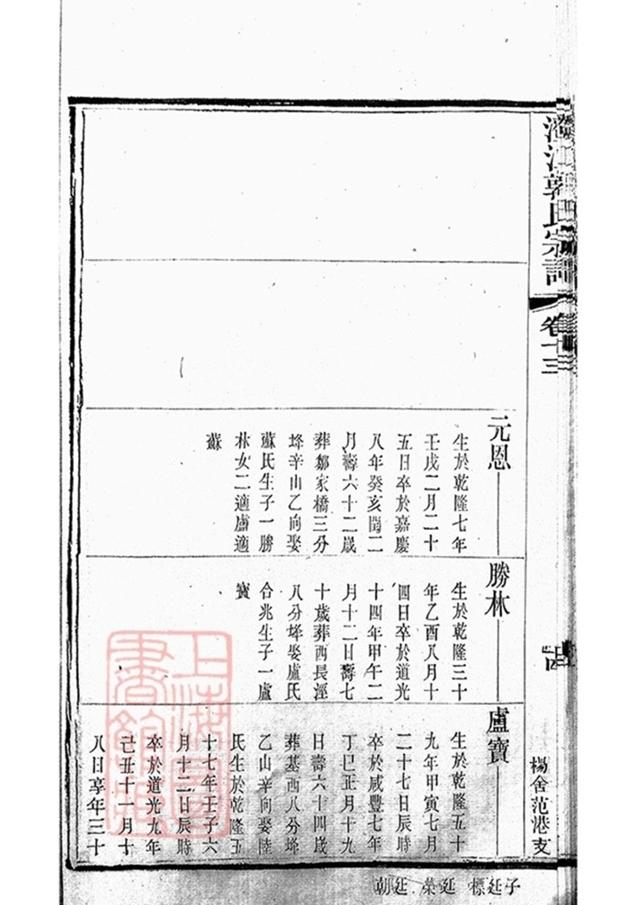 澄江郭氏宗譜
卷十三
楊舍范港支
元恩
生於乾隆七年
壬戌二月二十
五日卒於嘉慶
八年癸亥閏二
月壽六十二歲
葬鄒家橋三分
埄辛山乙向娶
蘇氏生子一勝
林女二適盧適
蘇
勝林
生於乾隆三十
年乙酉八月十
四日卒於道光
十四年甲午二
月十二日壽七
十歲葬西長涇
八分埄娶盧氏
合兆生子一盧
寶
盧寶
生於乾隆五十
九年甲寅七月
二十七日辰時
卒於咸豐七年
丁巳正月十九
日壽六十四歲
葬基西八分埄
乙山辛向娶陸
氏生於乾隆五
十七年壬子六
月十二日辰時
卒於道光九年
己丑十一月十
八日享年三十
子廷標 廷棻 廷朝
上海圖書館藏